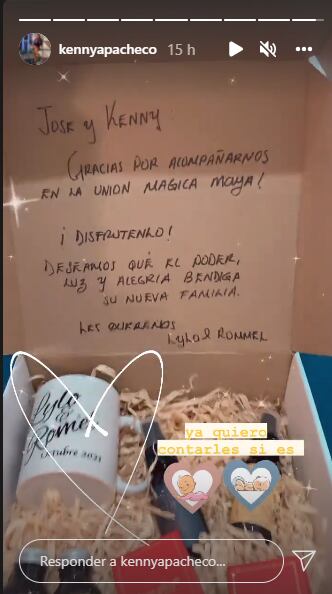 kennyapacheco 15 h
JOSE y KENNY
GRACIAS POR ACOMPAÑARNOS
EN LA UNION MAGICA MAYA!
¡DISFRUTENLO!
DESEAMOS QUÉ EL PODER,
LUZ Y ALEGRIA BENDIGA
SU NUEVA FAMILIA.
LES QUEREMOS
Lylo & ROMMEL
Lylo
&
Romel
Octubre 2021
ya quiero
contarles si es
Responder a kennyapacheco...